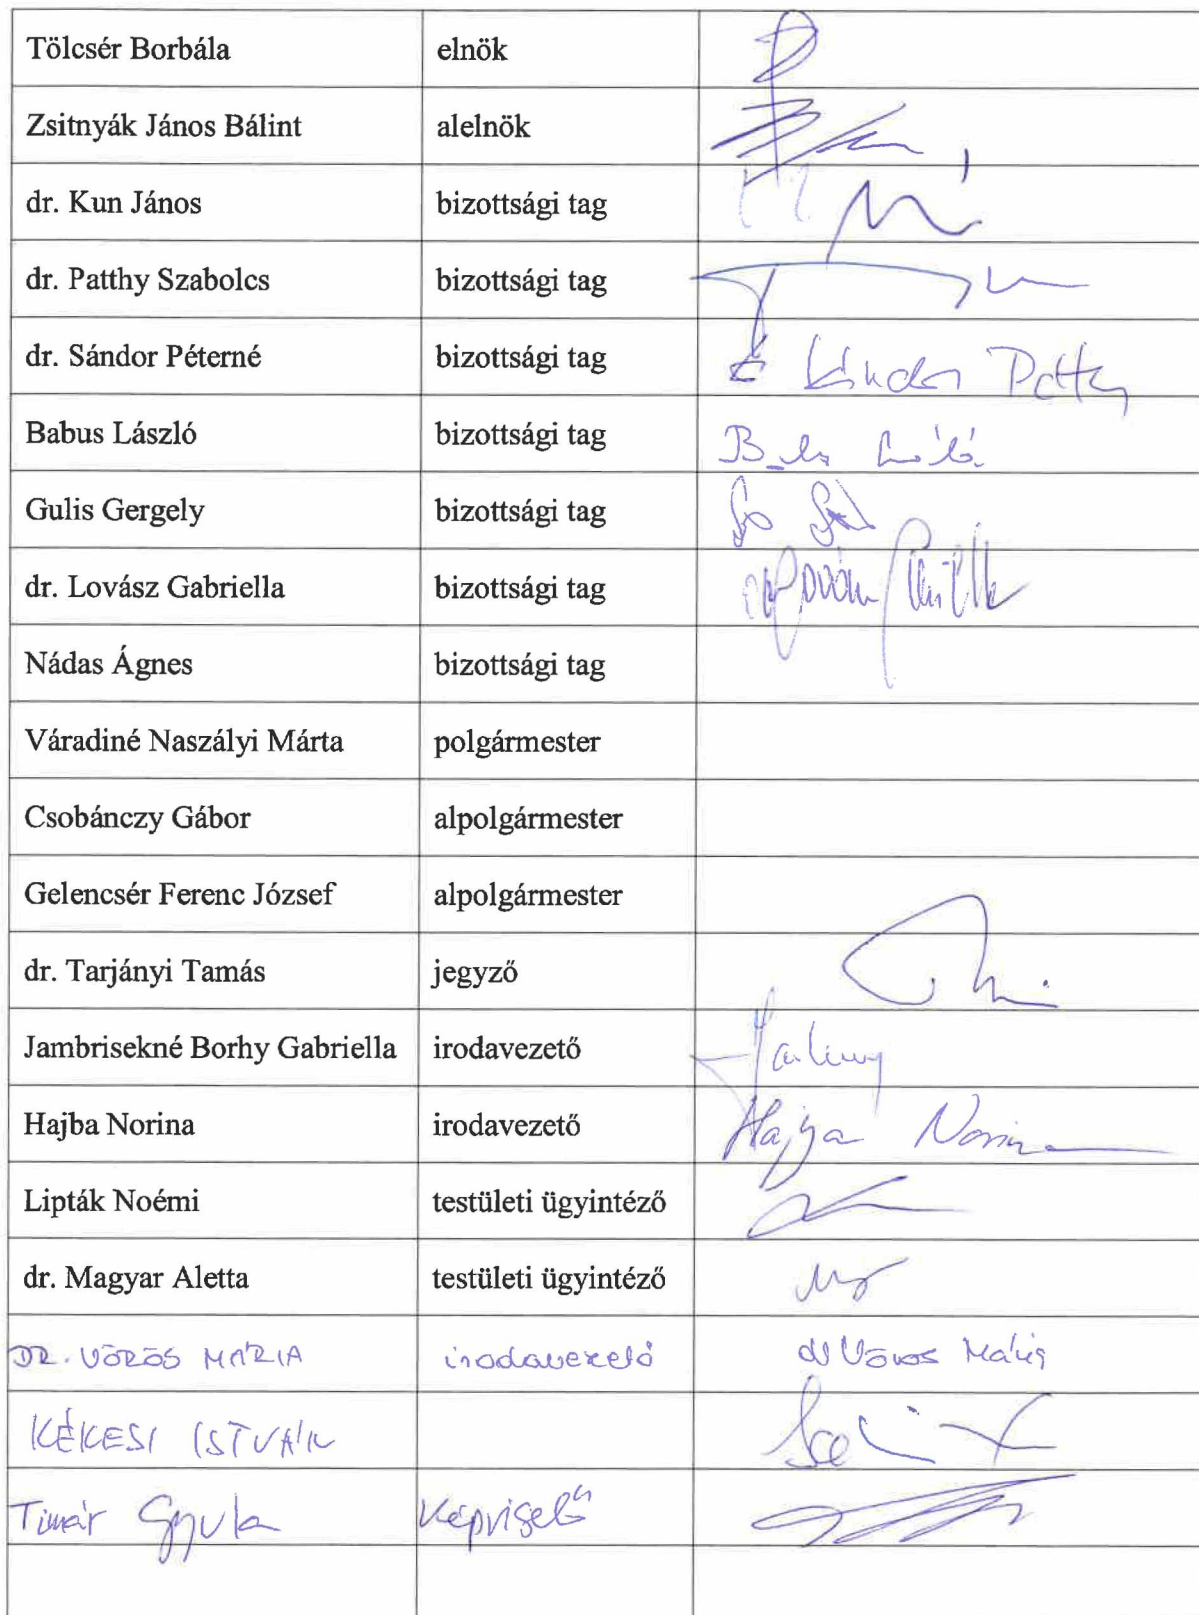 Tölcsér Borbála elnök
Zsitnyák János Bálint alelnök
dr. Kun János bizottsági tag
dr. Patthy Szabolcs bizottsági tag
dr. Sándor Péterné bizottsági tag
Babus László bizottsági tag
Gulis Gergely bizottsági tag
dr. Lovász Gabriella bizottsági tag
Nádas Ágnes bizottsági tag
Váradiné Naszályi Márta polgármester
Csobánczy Gábor alpolgármester
Gelencsér Ferenc József alpolgármester
dr. Tarjányi Tamás jegyző
Jambrisekné Borhy Gabriella irodavezető
Hajba Norina irodavezető Hajba Norina
Lipták Noémi testületi ügyintéző
dr. Magyar Aletta testületi ügyintéző
DR. VÖRÖS MÁRIA irodavezető dr Vörös Mária
KÉKESI ISTVÁN
Timár Gyula Képviselő